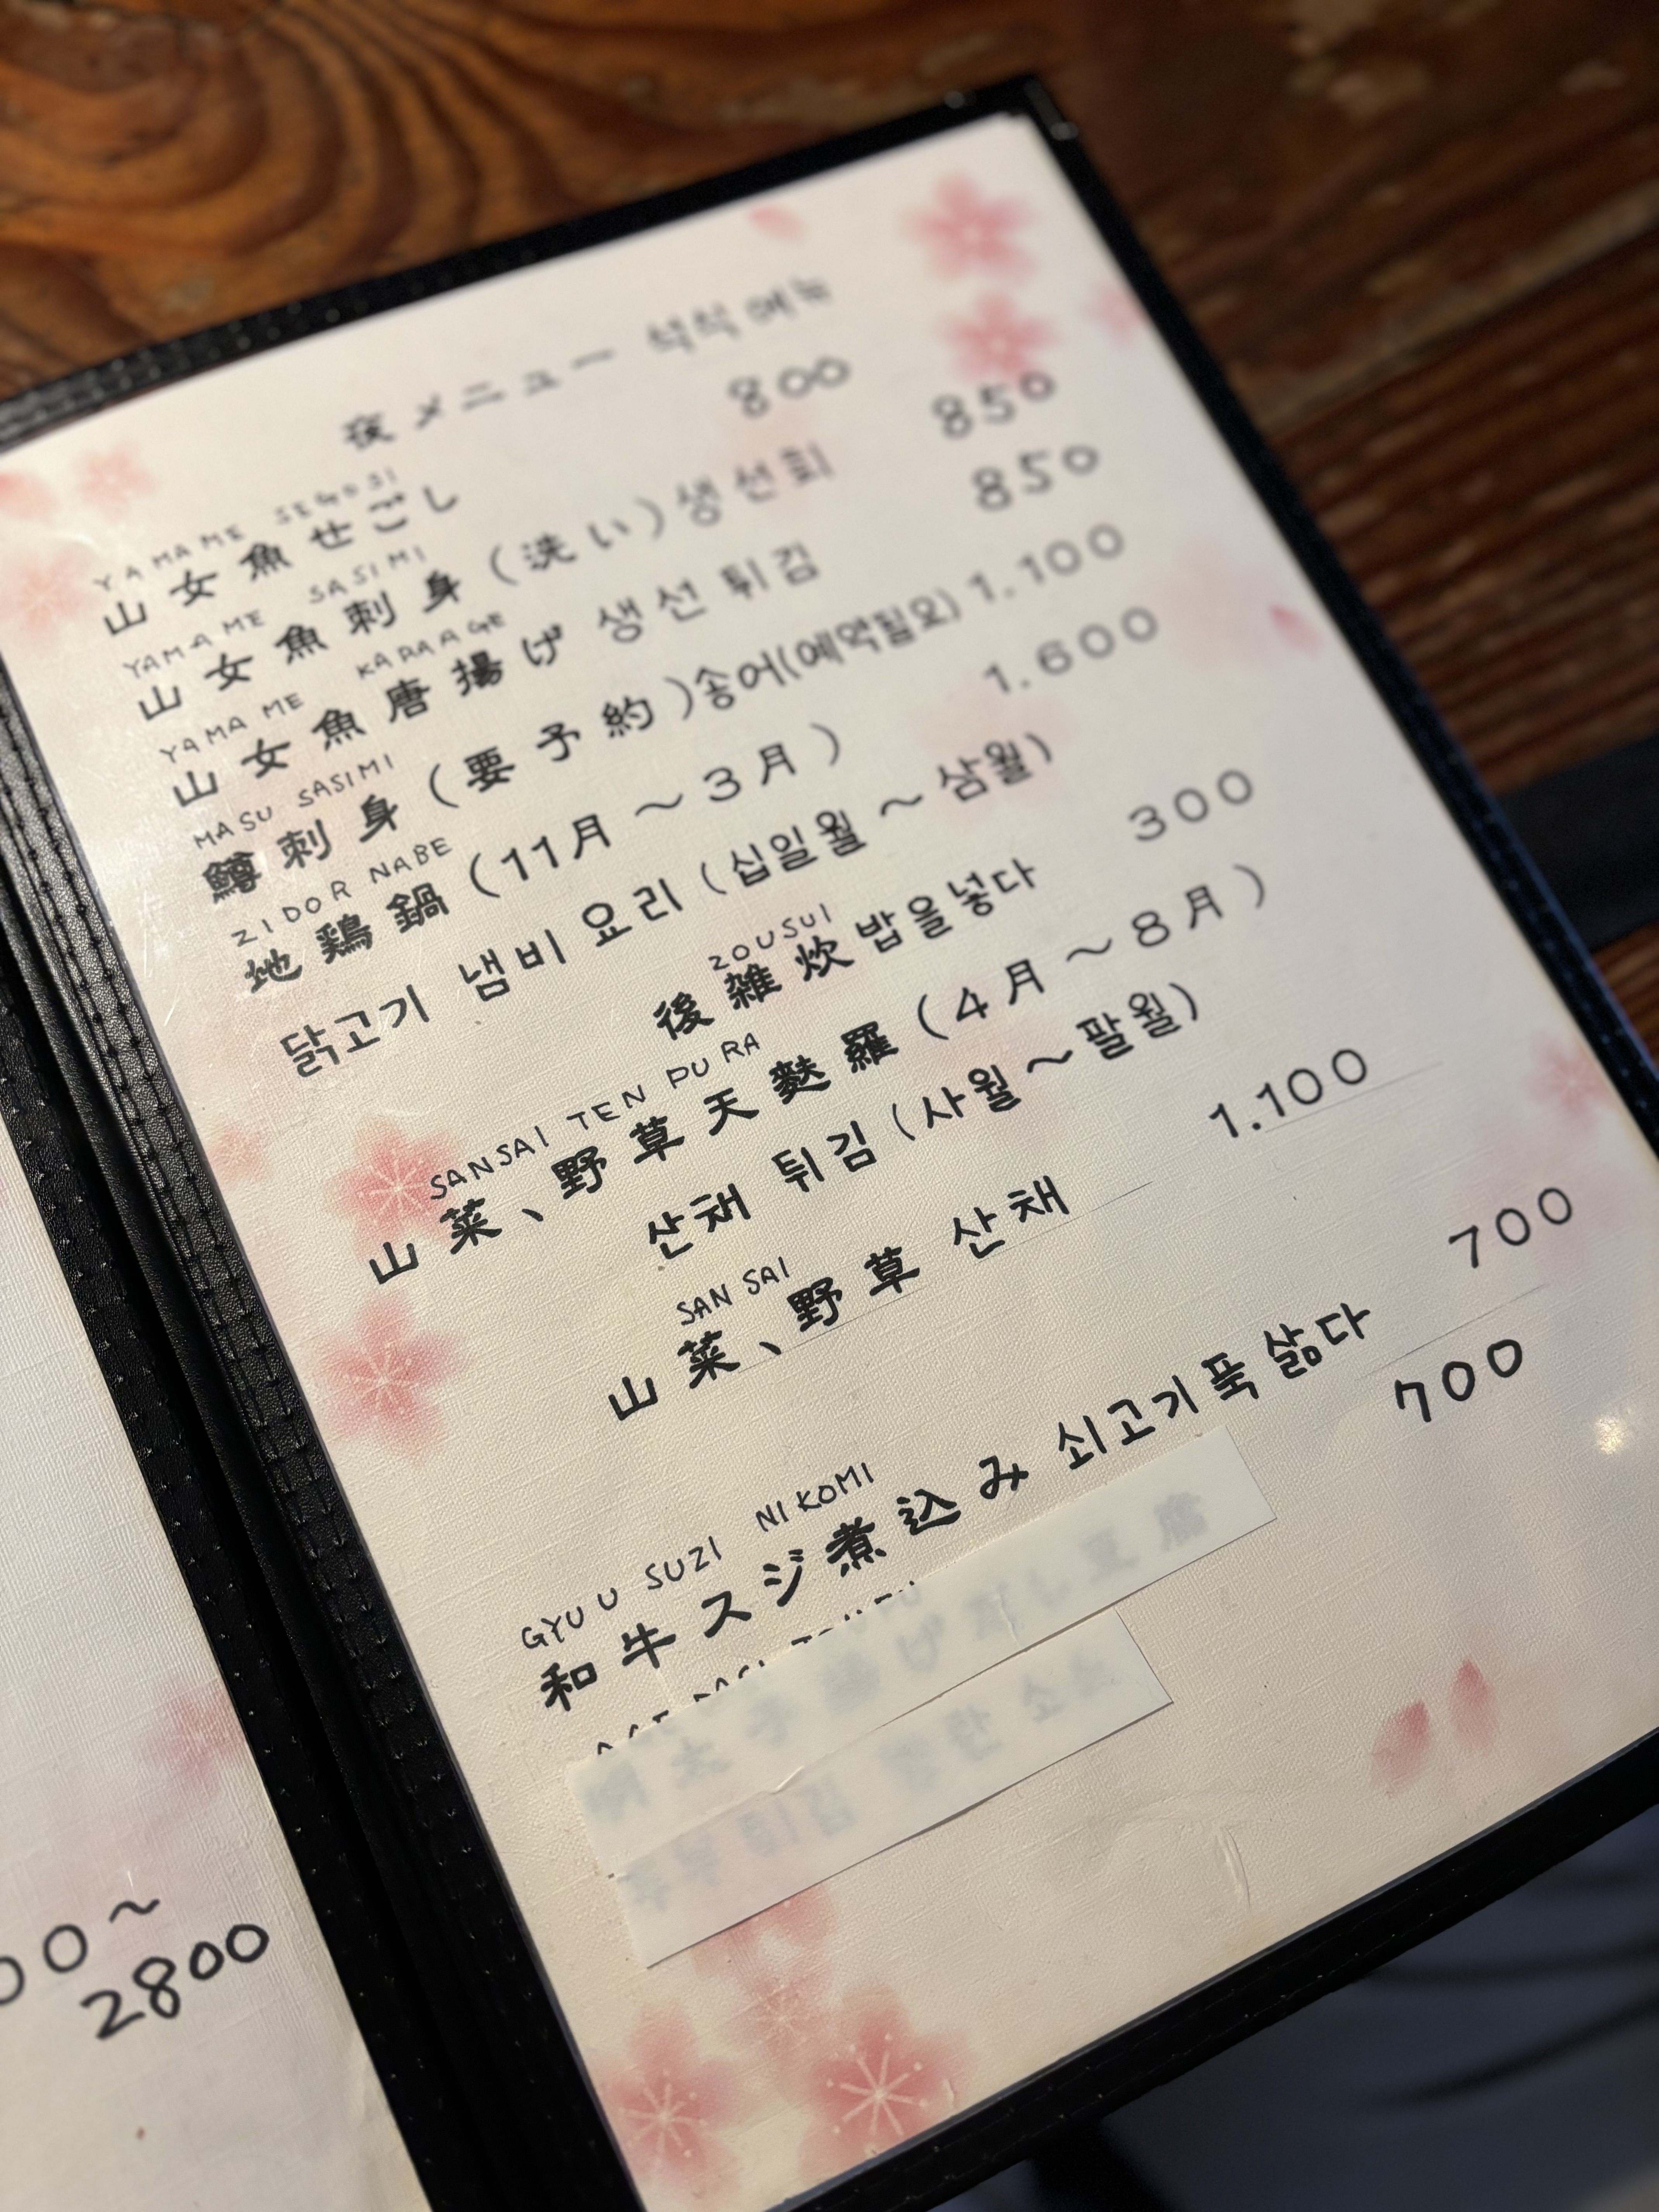 夜メニュー 석식 메뉴
800
YAMAME SEGOSI
山女魚せごし
850
YAMAME SASIMI
山女魚刺身(洗い)생선회
850
YAMAME KARAAGE
山女魚唐揚げ 생선 튀김
MASU SASIMI
鱒刺身(要予約)송어(예약필요) 1.100
ZIDORNABE
地鶏鍋(11月〜3月) 1.600
닭고기 냄비 요리(십일월〜삼월)
ZOUSUI
後雑炊밥을넣다 300
SANSAI TEN PURA
山菜、野草天麩羅(4月〜8月)
산채 튀김(사월〜팔월)
1.100
SAN SAI
山菜、野草 산채
700
GYUU SUZI NIKOMI
和牛スジ煮込み 쇠고기푹삶다
700
00〜
2800